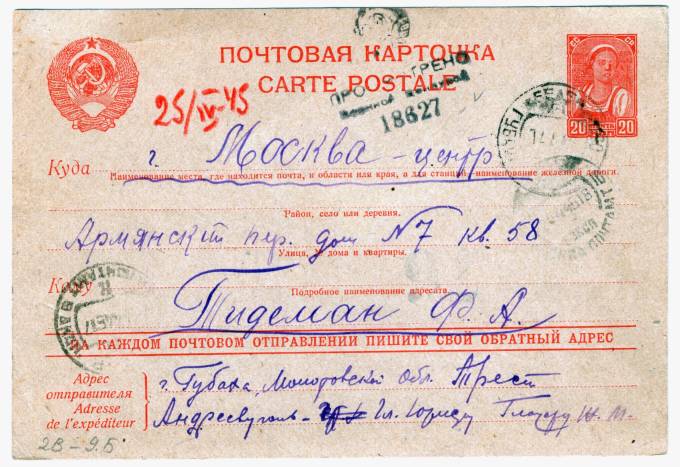 ПОЧТОВАЯ КАРТОЧКА
CARTE POSTALE
ПРОСМОТРЕНО
Военной Цензурой
18627
25/IV-45
СС СР
20 20
Куда г. Москва - центр
Наименование места, где находится почта, и области или края, а для станций - наименование железной дороги.
Район, село или деревня.
Армянский пер. дом №7 кв. 58
Улица, № дома и квартиры.
Кому
Подробное наименование адресата.
Тидеман Ф. А.
НА КАЖДОМ ПОЧТОВОМ ОТПРАВЛЕНИИ ПИШИТЕ СВОЙ ОБРАТНЫЙ АДРЕС
Адрес отправителя г. Губаха, Молотовской обл. Трест
Adresse de l'expéditeur Андреевуголь Гл. Юристу
2В-9.Б